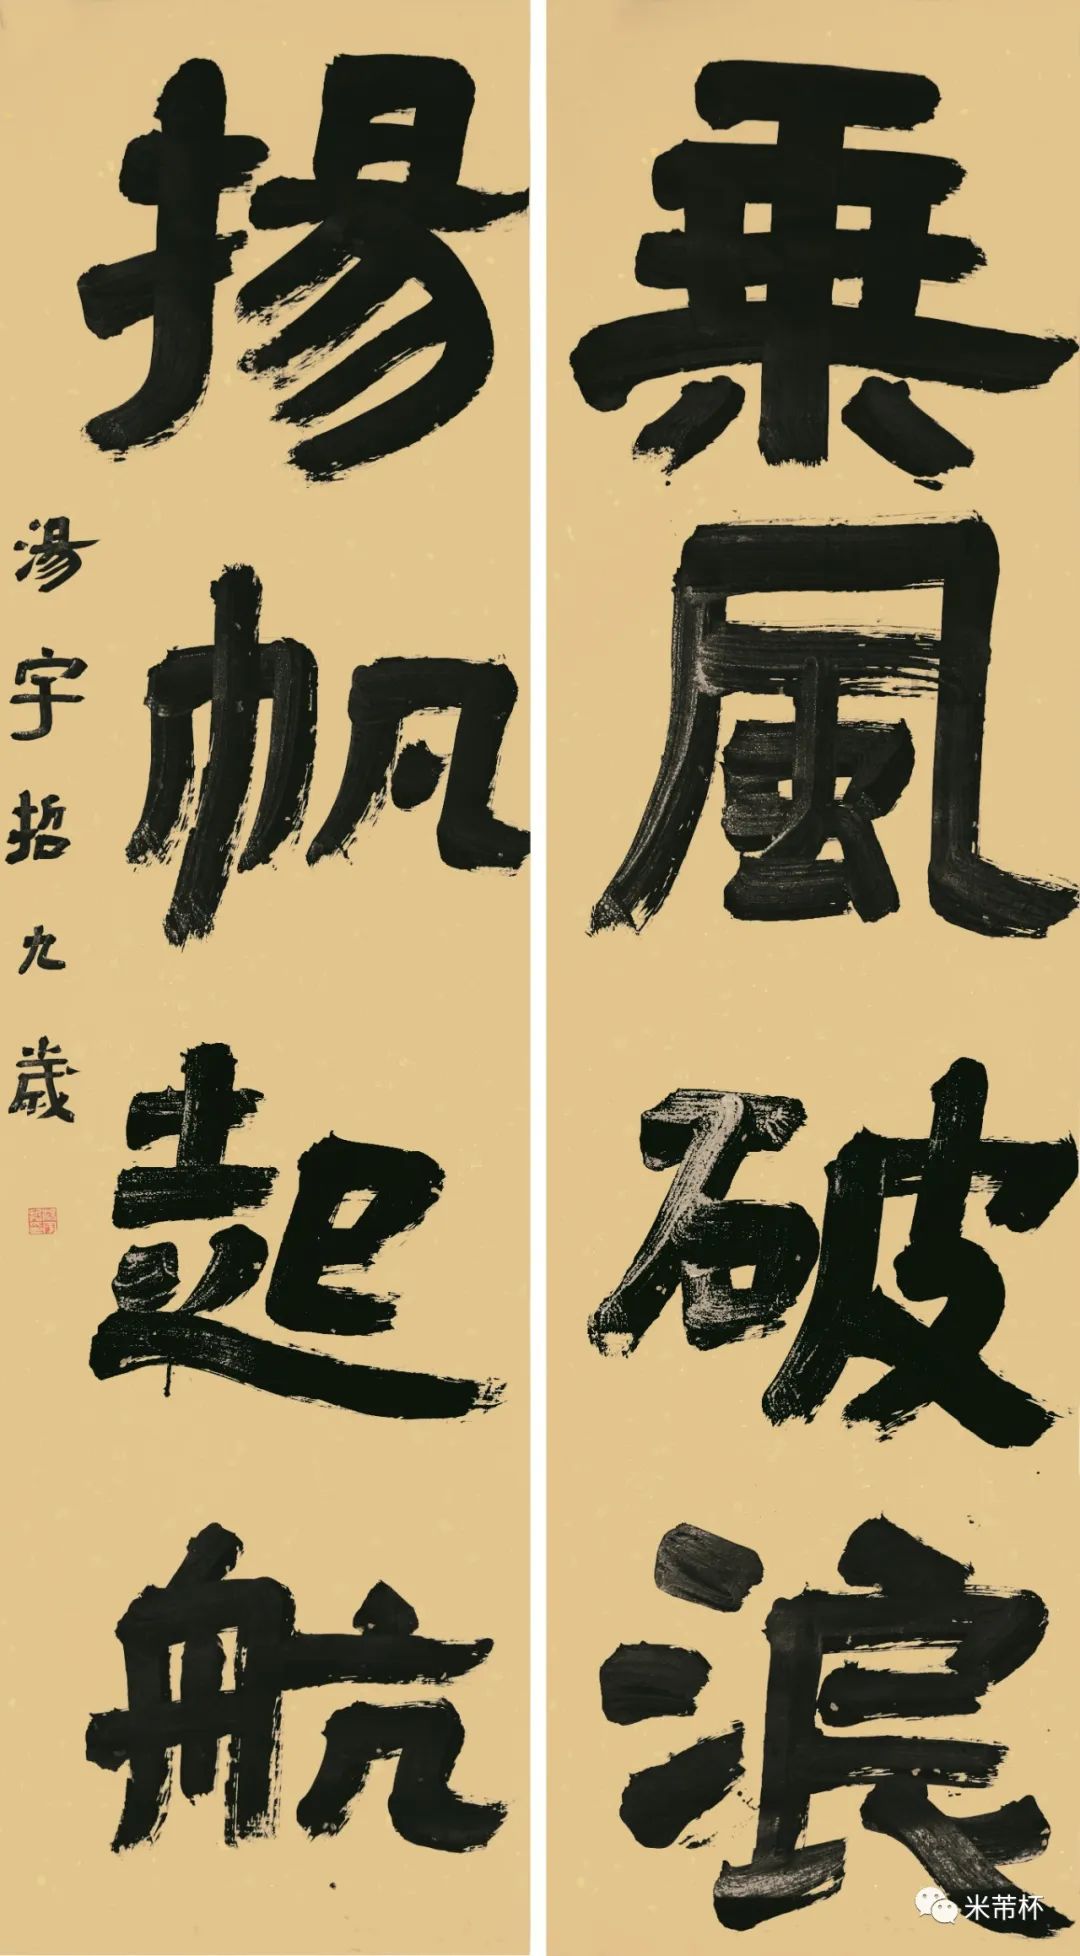 乗風破浪
揚帆起航
湯宇哲九歲
米芾杯